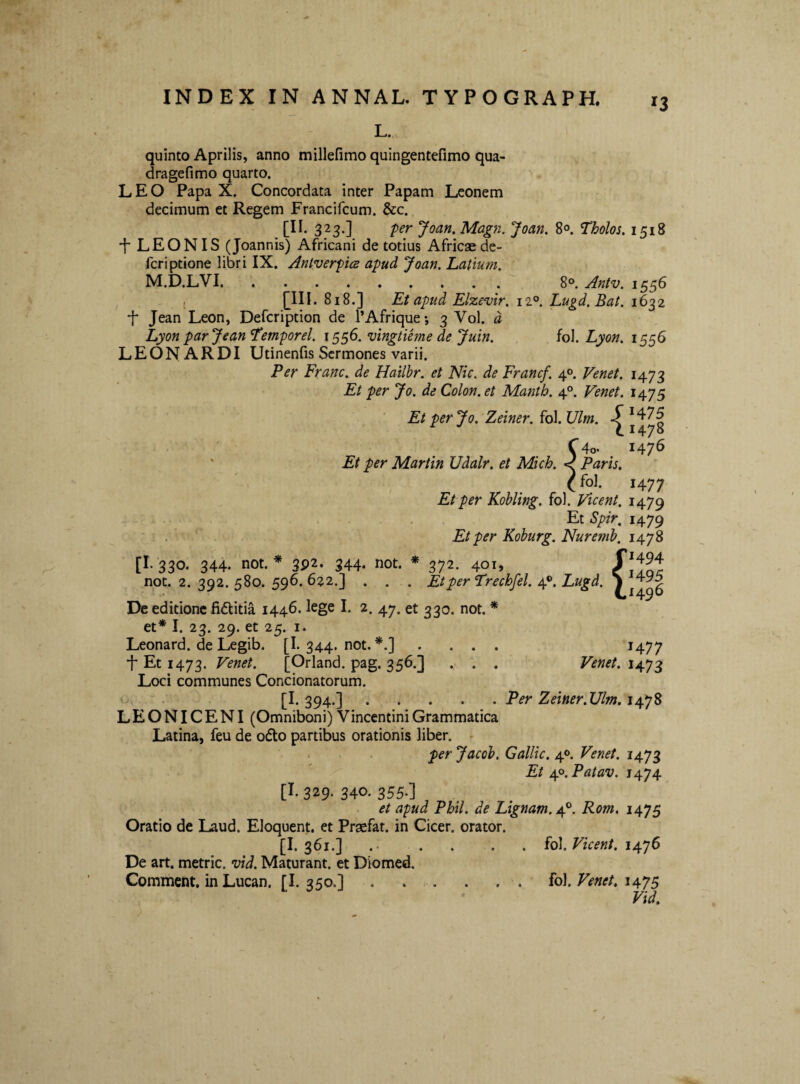 INDEX IN ANNAL. TYPOGRAPH. 13
L.
quinto Aprilis, anno millesimo quingentesimo qua-
dragesimo quarto.
LEO Papa X. Concordata inter Papam Leonem
decimum et Regem Franciscum. &c.
[II. 323.] per Joan. Magn. Joan. 8º. Tholos. 1518
† LEONIS (Joannis) Africani de totius Africæ de-
scriptione libri IX. Antverpiæ apud Joan. Latium.
M.D.LVI. . . . . . . . . . . 8º. Antv. 1556
[III. 818.] Et apud Elzevir. 12º. Lugd. Bat. 1632
† Jean Leon, Description de l'Afrique; 3 Vol. à
Lyon par Jean Temporel. 1556. vingtiéme de Juin. fol. Lyon. 1556
LEONARDI Utinensis Sermones varii.
Per Franc. de Hailbr. et Nic. de Francf. 4º. Venet. 1473
Et per Jo. de Colon. et Manth. 4º. Venet. 1475
Et per Jo. Zeiner. fol. Ulm. { 1475
1478
Et per Martin Udalr. et Mich. { 4o. 1476
Paris.
fol. 1477
Et per Kobling. fol. Vicent. 1479
Et Spir. 1479
Et per Koburg. Nuremb. 1478
[I. 330. 344. not. * 392. 344. not. * 372. 401,
not. 2. 392. 580. 596. 622.] . . . Et per Trechsel. 4º. Lugd. { 1494
1495
1496
De editione fictitiâ 1446. lege I. 2. 47. et 330. not. *
et* I. 23. 29. et 25. 1.
Leonard. de Legib. [I. 344. not. *.] . . . . 1477
† Et 1473. Venet. [Orland. pag. 356.] . . . Venet. 1473
Loci communes Concionatorum.
[I. 394.] . . . . . . Per Zeiner. Ulm. 1478
LEONICENI (Omniboni) Vincentini Grammatica
Latina, seu de octo partibus orationis liber.
per Jacob. Gallic. 4º. Venet. 1473
Et 4º. Patav. 1474
[I. 329. 340. 355.]
et apud Phil. de Lignam. 4º. Rom. 1475
Oratio de Laud. Eloquent. et Præfat. in Cicer. orator.
[I. 361.] . . . . . fol. Vicent. 1476
De art. metric. vid. Maturant. et Diomed.
Comment. in Lucan. [I. 350.] . . . . . . fol. Venet. 1475
Vid.